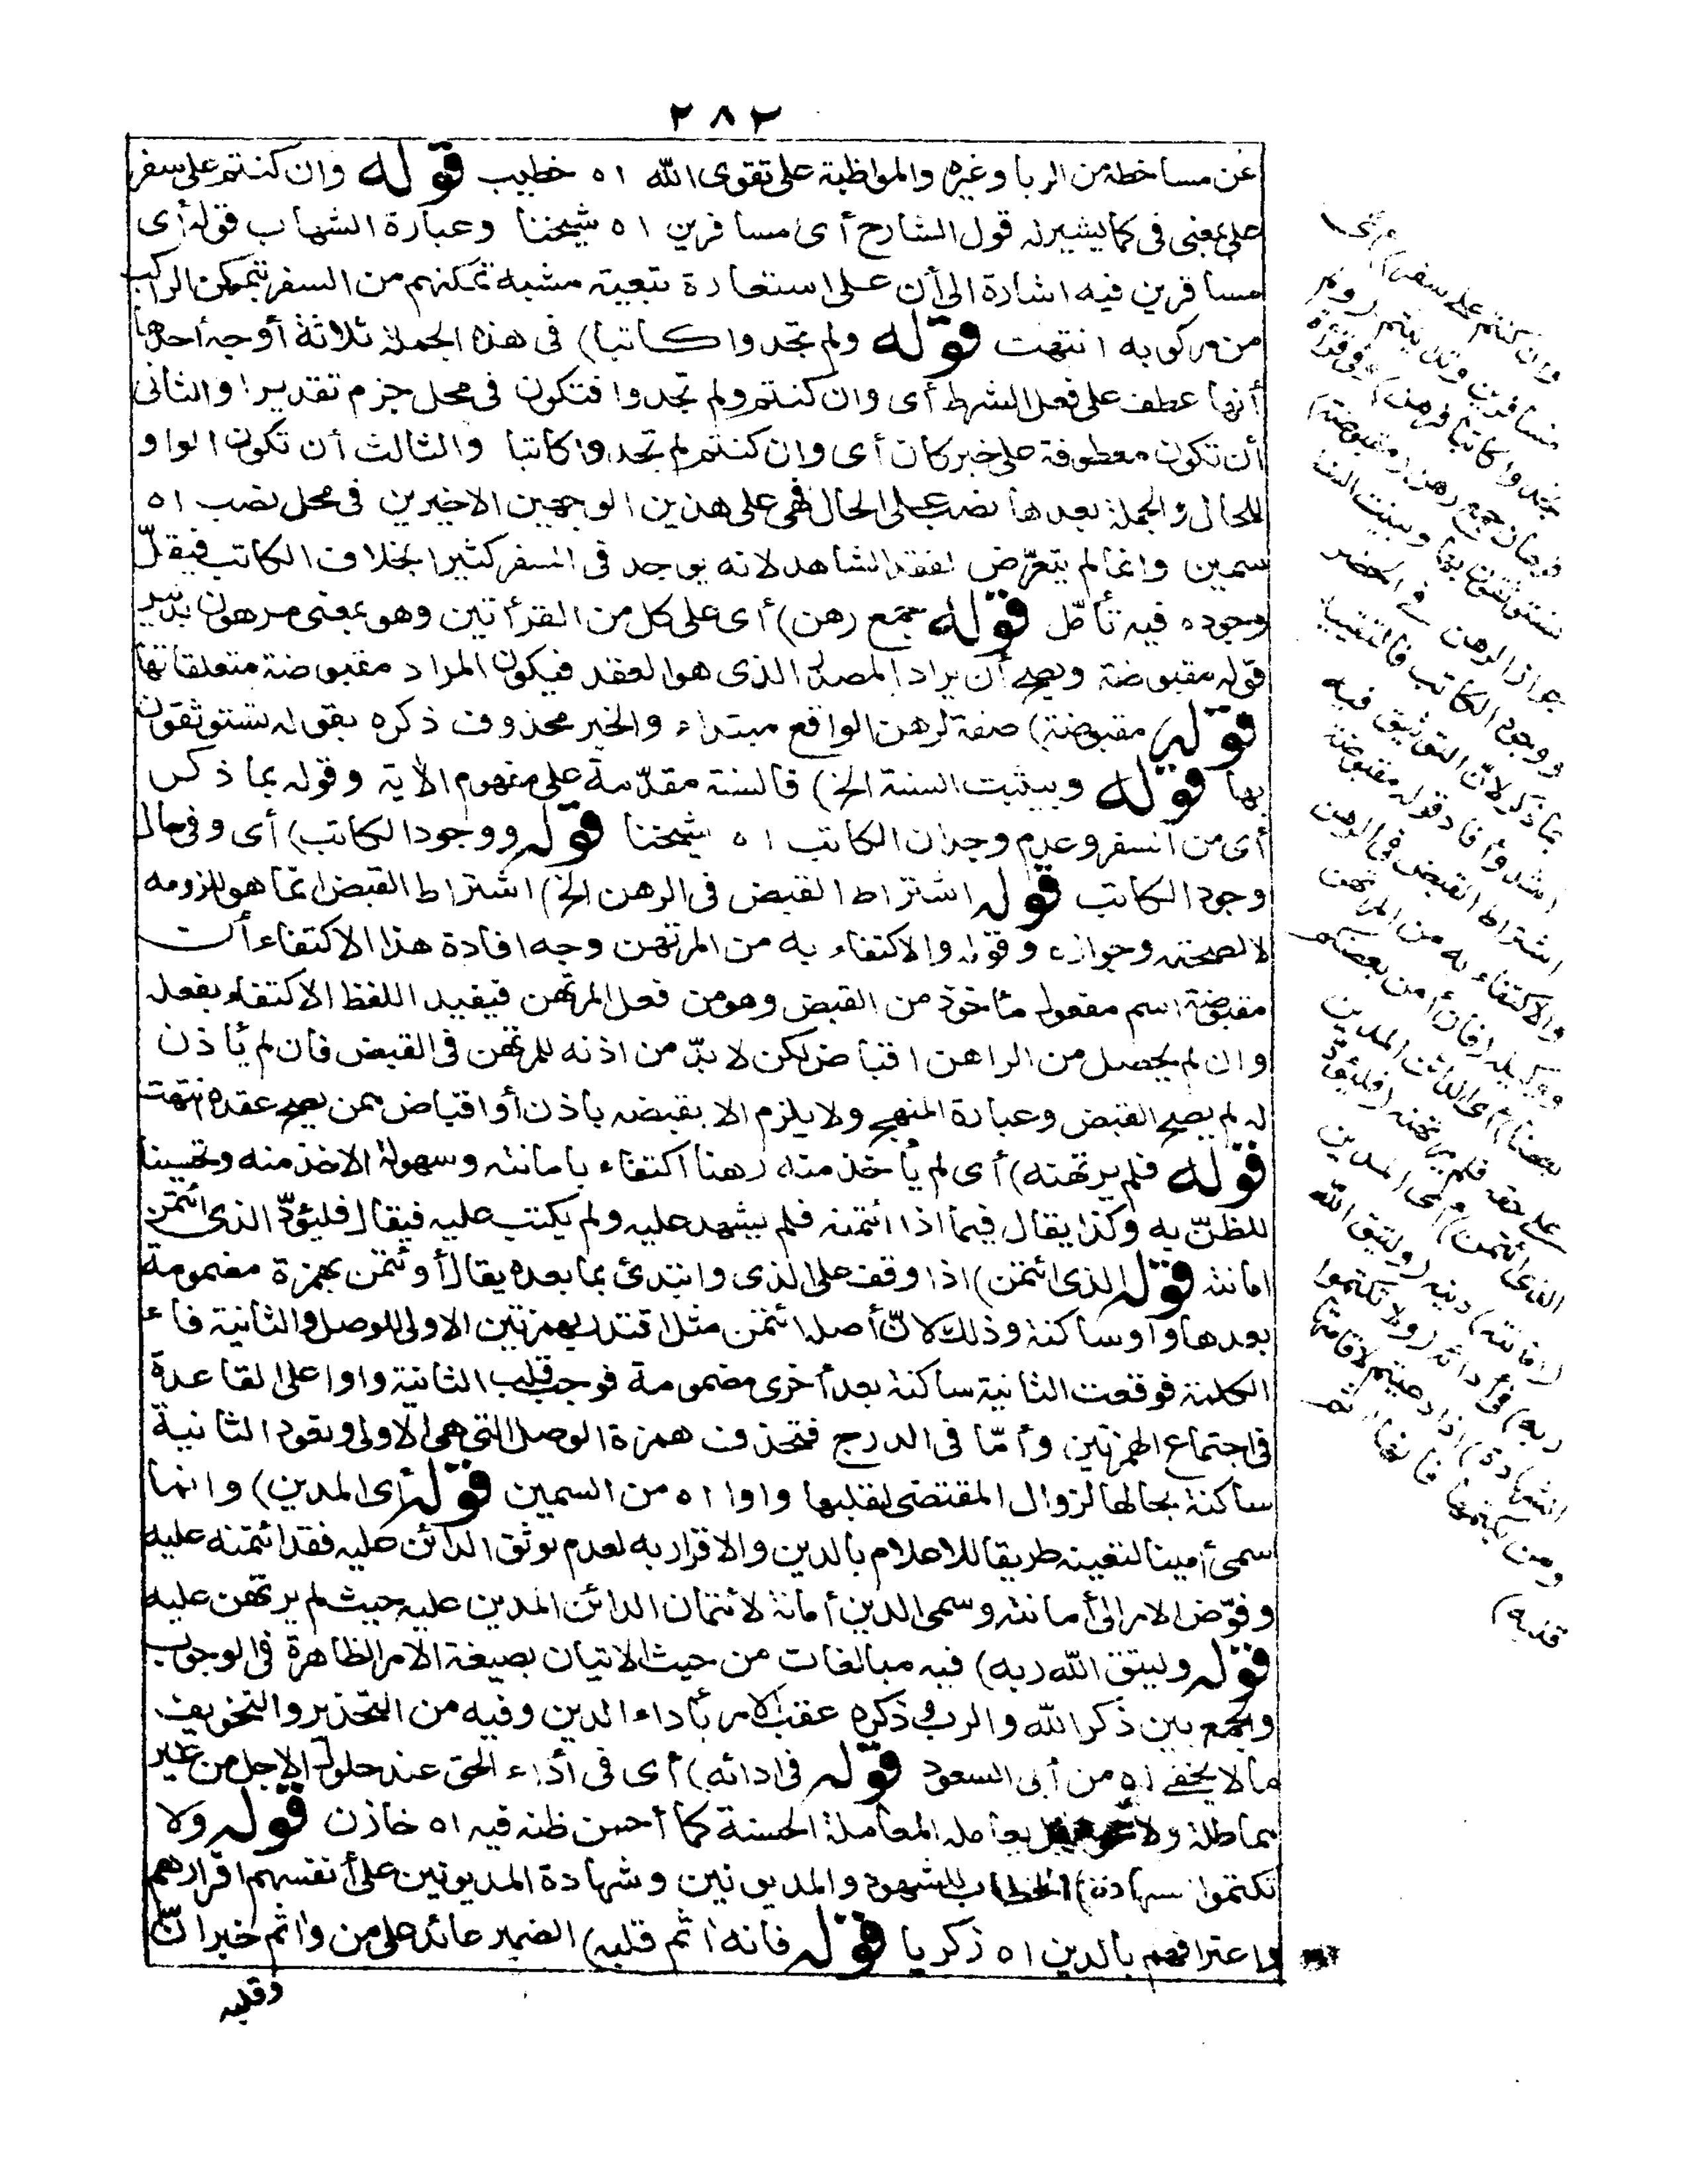 ٢٨٢
عن مساخطه من الربا وغيره والمواظبة على تقوى الله اه خطيب قوله وان كنتم على سفر
على بمعنى فى كما يشير له قول الشارح أى مسافرين اه شيخنا وعبارة الشهاب قوله أى
مسافرين فيه اشارة الى أن على استعارة تبعية مشبه تمكنهم من السفر بتمكن الراكب
من مركوبه انتهت قوله ولم تجدوا كاتبا) فى هذه الجملة ثلاثة أوجه أحدها
أنها عطف على فعل الشرط أى وان كنتم ولم تجدوا فتكون فى محل جزم تقديرا والثانى
أن تكون معطوفة على خبر كان أى وان كنتم لم تجدوا كاتبا والثالث أن تكون الواو
للحال والجملة بعدها نصب على الحال فهى على هذين الوجهين الاخيرين فى محل نصب اه
سمين وانما لم يتعرّض لفقد الشاهد لانه يوجد فى السفر كثيرا بخلاف الكاتب فيقلّ
وجوده فيه تأمّل قوله جمع رهن) أى على كل من القرأتين وهو بمعنى مرهون بدليل
قوله مقبوضة ويصح أن يراد المصدر الذى هو العقد فيكون المراد مقبوضة متعلقاتها
قوله مقبوضة) صفة لرهن الواقع مبتداء والخبر محذوف ذكره بقوله تستوثقون
بها قوله وبيّنت السنة الخ) فالسنة مقدّمة على مفهوم الأية وقوله بما ذكر
أى من السفر وعدم وجدان الكاتب اه شيخنا قوله ووجود الكاتب) أى وفى حال
وجود الكاتب قوله اشتراط القبض فى الرهن الخ) اشتراط القبض انما هو للزومه
لا لصحته وجوازه وقوله والاكتفاء به من المرتهن وجه افادة هذا الاكتفاء أنّ
مقبوضة اسم مفعول مأخوذ من القبض وهو من فعل المرتهن فيفيد اللفظ الاكتفاء بفعله
وان لم يحصل من الراهن اقباض لكن لا بدّ من اذنه للمرتهن فى القبض فان لم يأذن
له لم يصح القبض وعبارة المنهج ولا يلزم الا بقبضه باذن أو اقباض ممن يصح عقده انتهت
قوله فلم يرتهنه) أى لم يأخذ منه رهنا اكتفاء بامانته وسهولة الاخذ منه وتحسينا
للظنّ به وكذا يقال فيما اذا ائتمنه فلم يشهد عليه ولم يكتب عليه فيقال فليؤدّ الذى ائتمن
امانته قوله الذى ائتمن) اذا وقف على الذى وابتدئ بما بعده يقال أوتمن بهمزة مضمومة
بعدها واو ساكنة وذلك لانّ أصله ائتمن مثل اقتدر بهمزتين الاولى للوصل والثانية فاء
الكلمة فوقعت الثانية ساكنة بعد أخرى مضمومة فوجب قلب الثانية واوا على القاعدة
فى اجتماع الهمزتين وأمّا فى الدرج فتحذف همزة الوصل التى هى الاولى وتعود الثانية
ساكنة بحالها لزوال المقتضى لقلبها واوا اه من السمين قوله أى المدين) وانما
سمى أمينا لتعينه طريقا للاعلام بالدين والاقرار به لعدم توثق الدائن عليه فقد ائتمنه عليه
وفوّض الامر الى أمانته وسمى الدين أمانة لائتمان الدائن المدين عليه حيث لم يرتهن عليه
قوله وليتق الله ربه) فيه مبالغات من حيث الاتيان بصيغة الامر الظاهرة فى الوجوب
والجمع بين ذكر الله والرب وذكره عقب الامر بأداء الدين وفيه من التحذير والتخويف
ما لا يخفى اه من أبى السعود قوله فى ادائه) أى فى أداء الحق عند حلول الاجل من غير
مماطلة ولا بل يعامله المعاملة الحسنة كما أحسن ظنه فيه اه خازن قوله ولا
تكتموا الشهادة) الخطاب للشهود والمديونين وشهادة المديونين على أنفسهم اقرارهم
واعترافهم بالدين اه زكريا قوله فانه اثم قلبه) الضمير عائد على من واثم خبر انّ
وقلبه
وان كنتم على سفر) أى
مسافرين وتداينتم (ولم
تجدوا كاتبا فرهن) وفى قراءة
فرهان جمع رهن (مقبوضة)
تستوثقون بها وبينت السنة
جواز الرهن فى الحضر
ووجود الكاتب فالتقييد
بما ذكر لانّ التوثيق فيه
اشد وأفاد قوله مقبوضة
اشتراط القبض فى الرهن
والاكتفاء به من المرتهن
ووكيله (فان أمن بعضكم
بعضا) أى الدائن المدين
على حقه فلم يرتهنه (فليؤدّ
الذى ائتمن) أى المدين
(امانته) دينه (وليتق الله
ربه) فى أدائه (ولا تكتموا
الشهادة) اذا دعيتم لاقامتها
ومن يكتمها فانه اثم
قلبه)